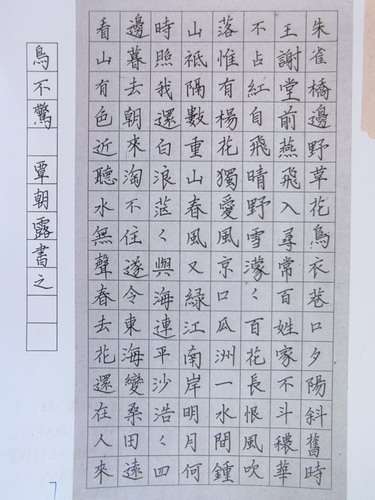 朱雀橋邊野草花烏衣巷口夕陽斜舊時
王謝堂前燕飛入尋常百姓家不斗穠華
不占紅自飛晴野雪濛々百花長恨風吹
落惟有楊花獨愛風京口瓜洲一水間鍾
山祇隔數重山春風又綠江南岸明月何
時照我還白浪茫々與海連平沙浩々四
邊暮去朝來淘不住遂令東海變桑田遠
看山有色近聽水無聲春去花還在人來
鳥不驚 覃朝露書之
7